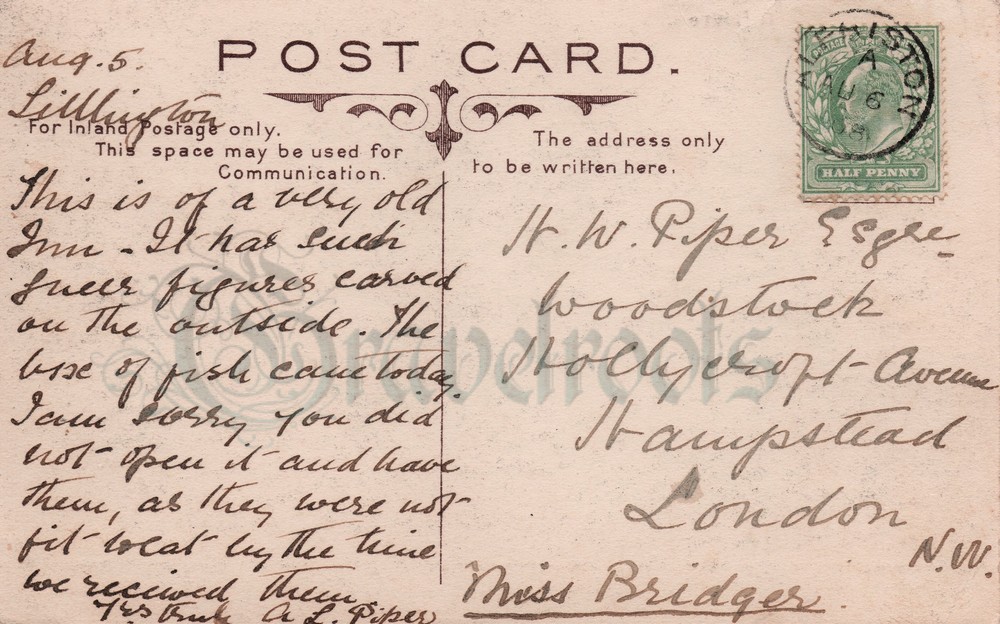 POST CARD.
Aug. 5.
Litlington
For Inland Postage only.
This space may be used for
Communication.
The address only
to be written here.
ALFRISTON
A
AU 6
HALF PENNY
This is of a very old
Inn - It has such
queer figures carved
on the outside. The
box of fish came today.
I am sorry you did
not open it and have
them, as they were not
fit to eat by the time
we received them.
Yrs truly A L. Piper
H. W. Piper Esqre
Woodstock
Hollycroft Avenue
Hampstead
London
N.W.
Miss Bridger.
Gravelroots